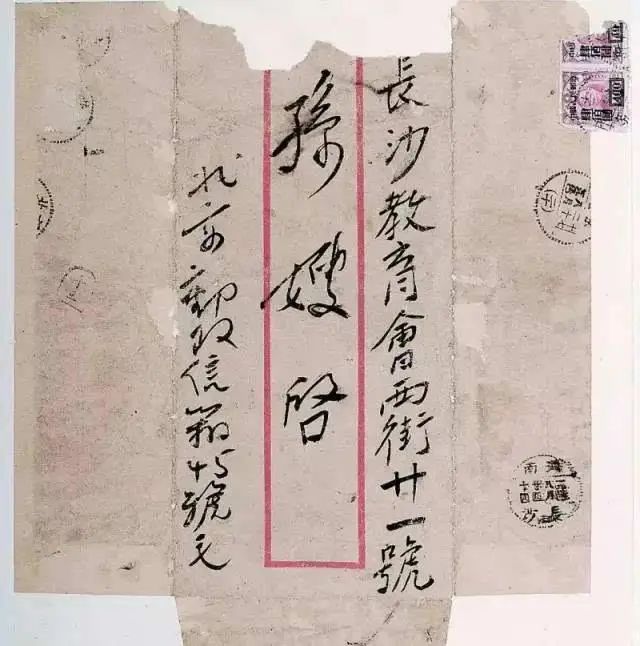 長沙教育會西街廿一號
孫嫂啓
北京郵政信箱45號毛
南
長沙